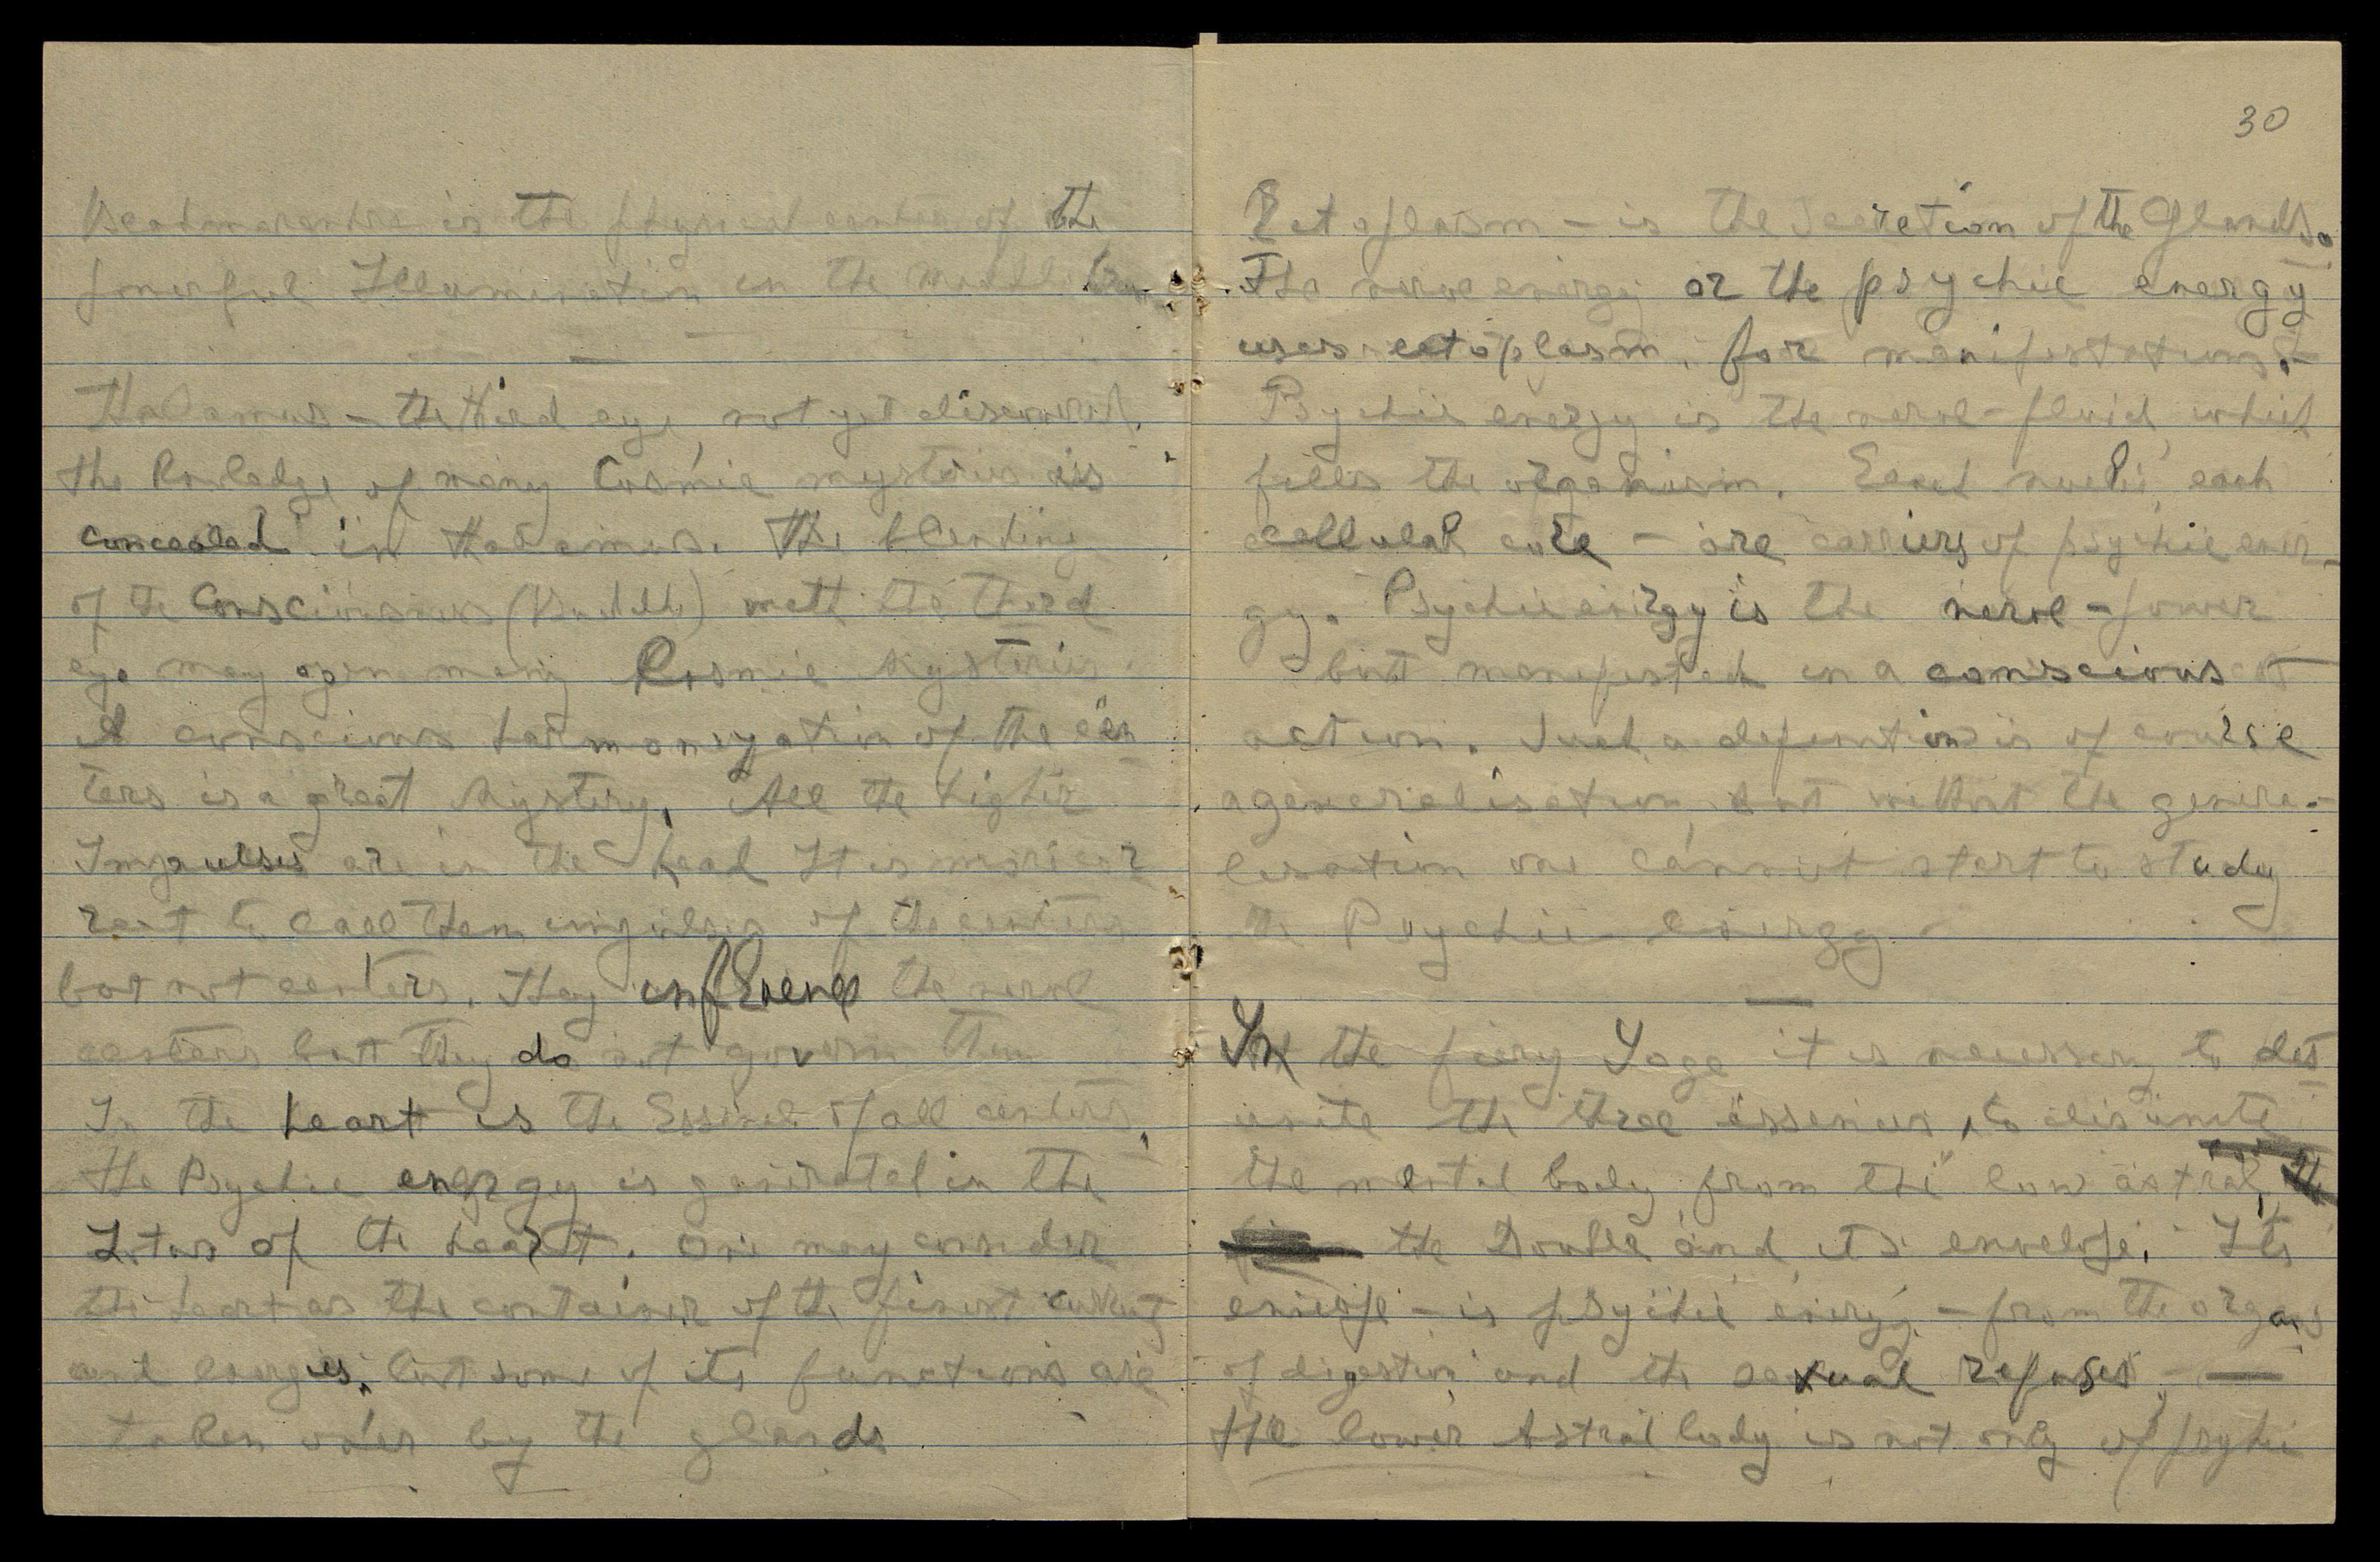 is the physical center of the
powerful Illumination in the
Thalamus - the third eye, not yet discovered,
the Knowledge of many Cosmic mysteries is
concealed in Thalamus. The blending
of the Consciousness (Buddhi) with the third
eye may open many Cosmic Mysteries.
A conscious harmonyzation of the cen
ters is a great Mystery. All the higher
Impulses are in the head It is more cor
rect to call them impulses of the centers
but not centers. They influence the nerve
centers but they do not govern them
In the heart is the Essence of all centers,
the Psychic energy is generated in the
Lotus of the heart. One may consider
the heart as the container of the finest current
and energies, but some of its functions are
taken over by the glands
30
Ectoplasm - is the Secretion of the Glands.
The nerve energy or the psychic energy
uses ectoplasm for manifestations.
Psychic energy is the nerve-fluid, which
fills the organism. Each nuclei, each
cellular core - are carriers of psychic ener
gy. Psychic energy is the nerve-power
but manifested in a conscious
action. Such a definition is of course
a generalisation, but without the genera-
lisation one cannot start to study
the Psychic Energy.
In the fiery Yoga it is necessary to dis
unite the three essences, to disunite
the mental body from the low astral, the
the Double and its envelope. Its
envelope - is psychic energy - from the organs
of digestion and the sexual refuses -
The lower Astral body is not only of psychic